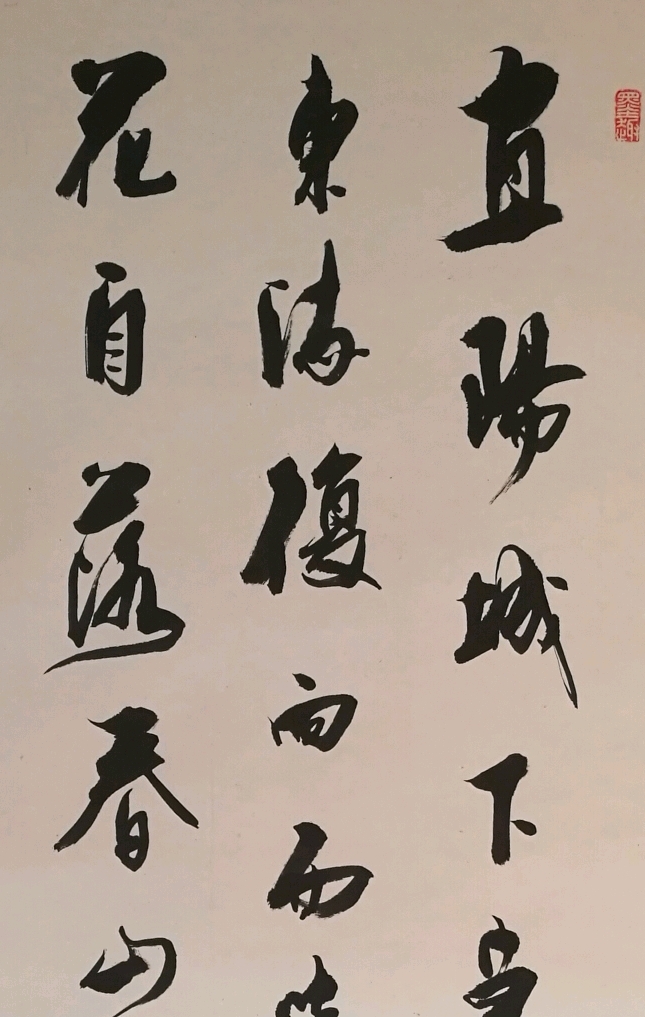 宜陽城下草
東流復向西
花自落春山